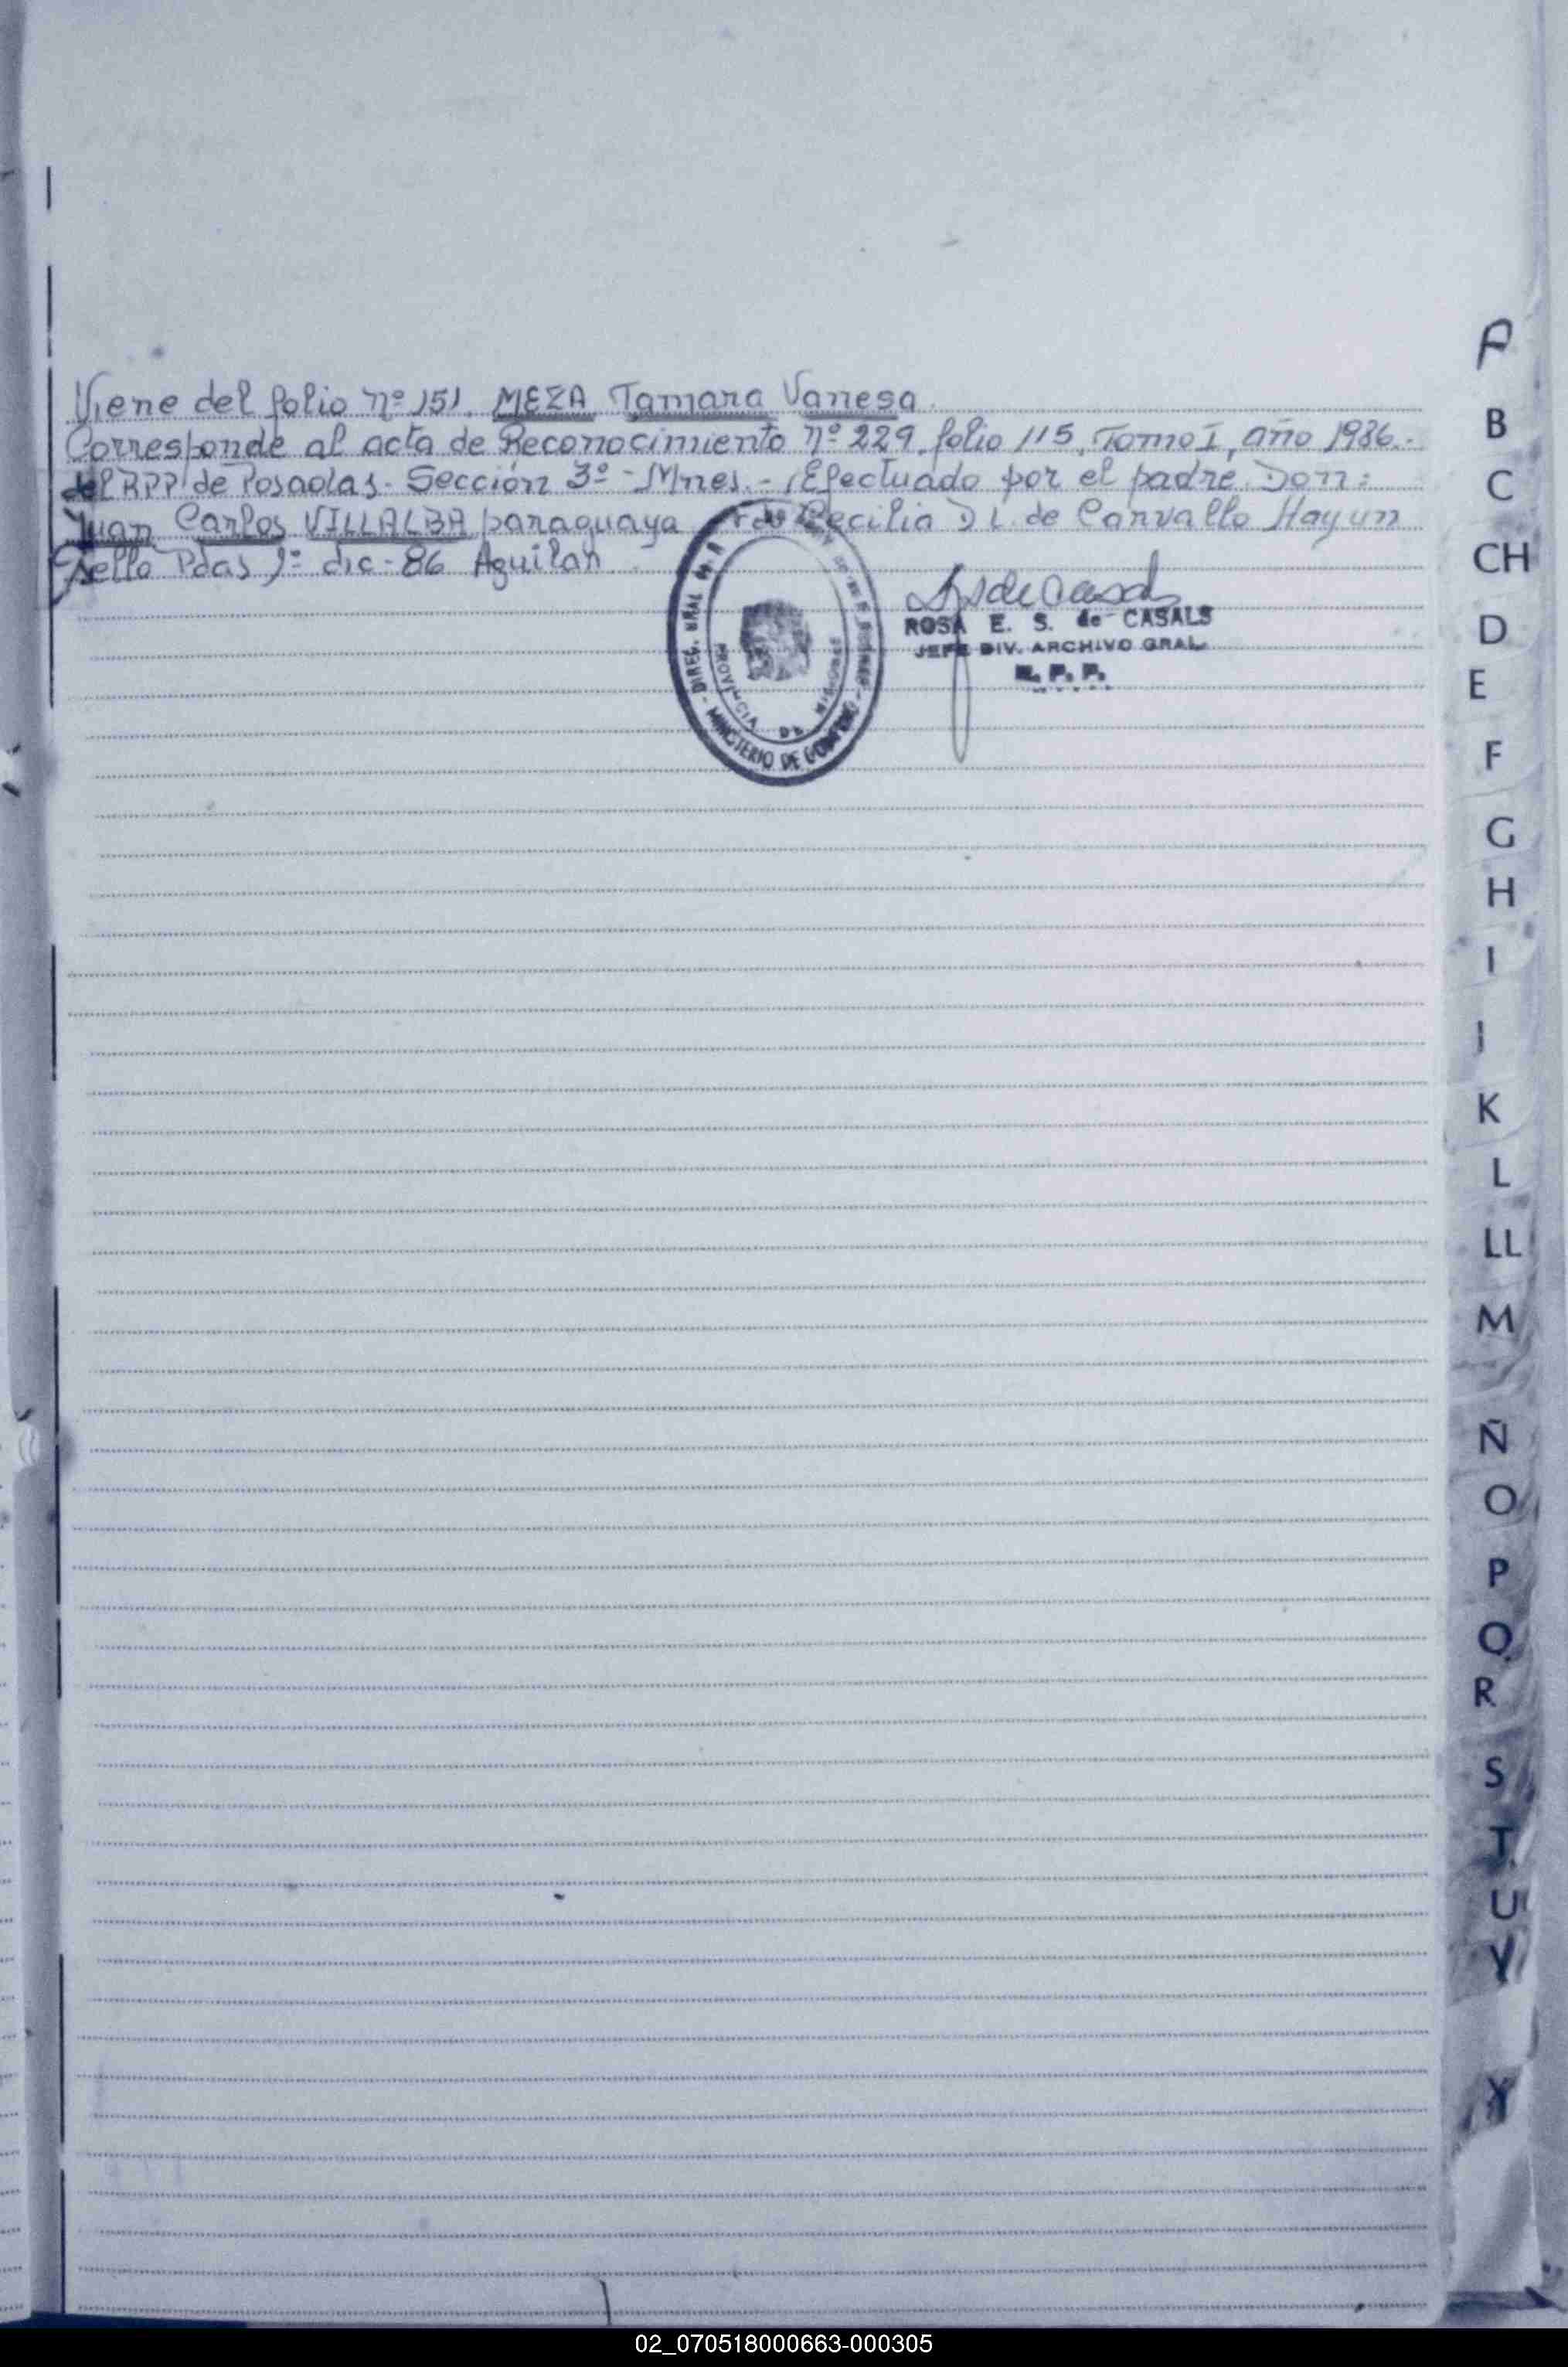 Viene del folio nº 151. MEZA Tamara Vanesa.
Corresponde al acta de Reconocimiento nº 229, folio 115, Tomo I, año 1986.-
del RPP de Posadas. Sección 3º - Mnes. - Efectuado por el padre Don:
Juan Carlos VILLALBA paraguaya Cecilia D L. de Carvallo Hay un
Sello Pdas 1º dic-86 Aguilar
ROSA E. S. de CASALS
JEFE DIV. ARCHIVO GRAL.
R. P. P.
MINISTERIO DE GOBIERNO
PROVINCIA DE MISIONES
A
B
C
CH
D
E
F
G
H
I
J
K
L
LL
M
Ñ
O
P
Q
R
S
T
U
V
Y
02_070518000663-000305